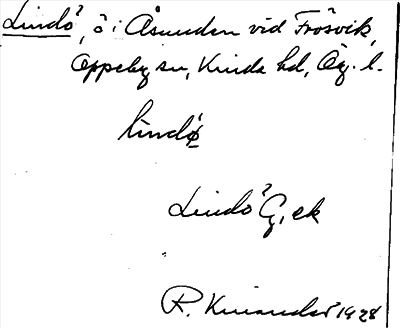 Lindö, ö i Åsunden vid Frösvik,
Oppeby sn, Kinda hd, Ög. l.
lindø
Lindö G, ek
R. Kinander 1928